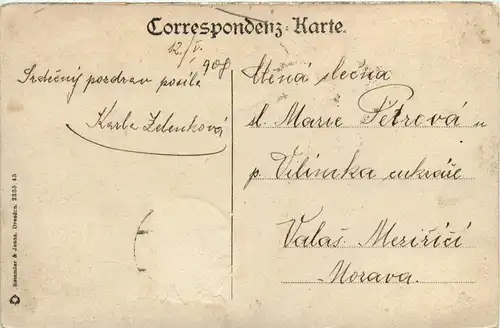 Correspondenz-Karte.
12./V. 908
Srdečný pozdrav posílá
Karla Zdenková
Ctěná slečna
sl. Marie Petrová u
p. Vilímka cukráře
Valaš. Meziříčí
Morava.
Stemmler & Jonas, Dresden. 2353. 45